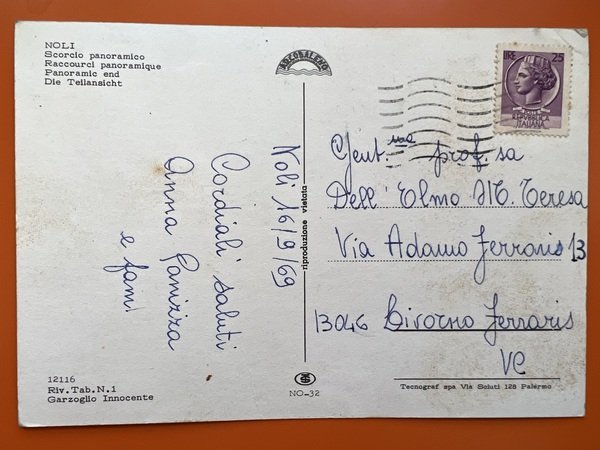 NOLI
Scorcio panoramico
Raccourci panoramique
Panoramic end
Die Teilansicht
ARCOBALENO
LIRE 25
REPUBBLICA
ITALIANA
Noli 16/9/69
Cordiali saluti
Anna Panizza
e fam.
riproduzione vietata
Gent.ma prof.sa
Dell'Elmo M. Teresa
Via Adamo Ferraris 13
13046 Livorno Ferraris
VC
12116
Riv. Tab. N. 1
Garzoglio Innocente
NO-32
Tecnograf spa Via Sciuti 128 Palermo